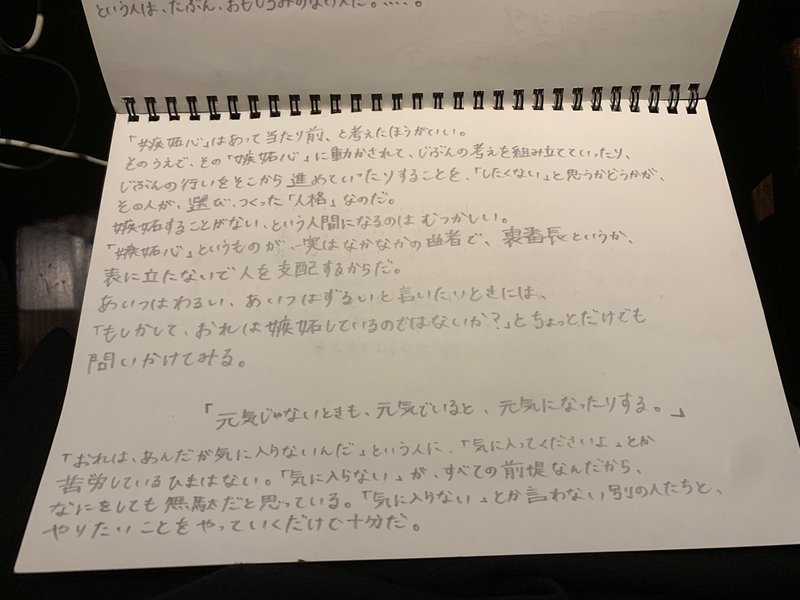 という人は、たぶん、おもしろみのない人だ。‥‥。
「嫉妬心」はあって当たり前、と考えたほうがいい。
そのうえで、その「嫉妬心」に動かされて、じぶんの考えを組み立てていったり、
じぶんの行いをそこから進めていったりすることを、「したくない」と思うかどうかが、
その人が、選び、つくった「人格」なのだ。
嫉妬することがない、という人間になるのは むつかしい。
「嫉妬心」というものが 実はなかなかの曲者で、裏番長というか、
表に立たないで人を支配するからだ。
あいつはわるい、あいつはずるいと言いたいときには、
「もしかして、おれは嫉妬しているのではないか?」とちょっとだけでも
問いかけてみる。
「元気じゃないときも、元気でいると、元気になったりする。」
「おれは、あんたが気に入らないんだ」という人に、「気に入ってくださいよ」とか
苦労しているひまはない。「気に入らない」が、すべての前提なんだから、
なにをしても無駄だと思っている。「気に入らない」とか言わない別の人たちと、
やりたいことをやっていくだけで十分だ。